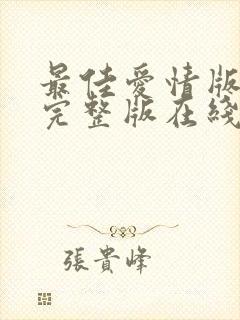 最佳愛情版
完整版在綫
張貴峰